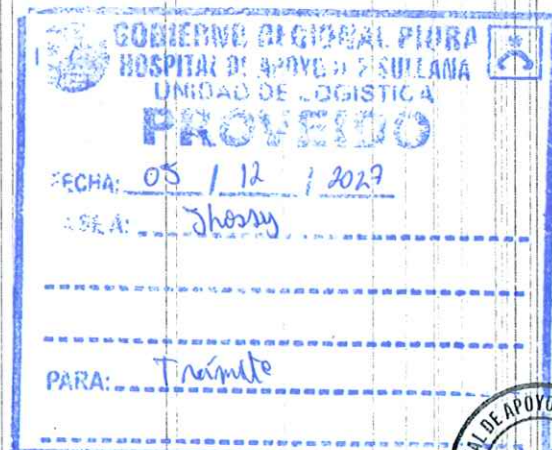 GOBIERNO REGIONAL PIURA
HOSPITAL DE APOYO II-2 SULLANA
UNIDAD DE LOGISTICA
PROVEIDO
FECHA: 05 / 12 / 2027
PASE A: Jhossy
PARA: Trámite
AL DE APOYO